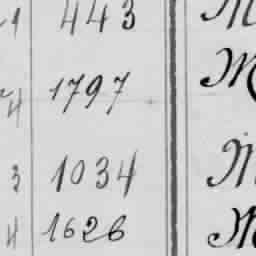 1 443 M
4 1797 M
3 1034 M
4 1626 M